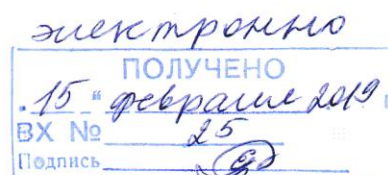 электронно
ПОЛУЧЕНО
"15" февраля 2019
ВХ № 25
Подпись